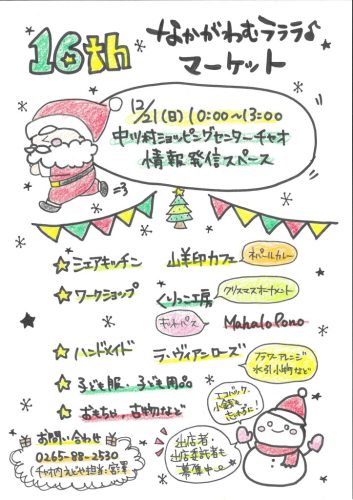 16th
なかがわむらラララ♪
マーケット
12/21(日) 10:00〜13:00
中川村ショッピングセンターチャオ
情報発信スペース
☆シェアキッチン 山羊印カフェ ネパールカレー
☆ワークショップ くりっこ工房 クリスマスオーナメント
ホットパス Mahalo Pono
☆ハンドメイド ラ・ヴィアンローズ フラワーアレンジ
水引小物など
☆子ども服・子ども用品
☆おもちゃ、古物など
お問い合わせ
0265-88-2530
(チャオ内えびや担当・宮澤)
出店者・
出店委託者も
募集中。
エコバック、
小銭を